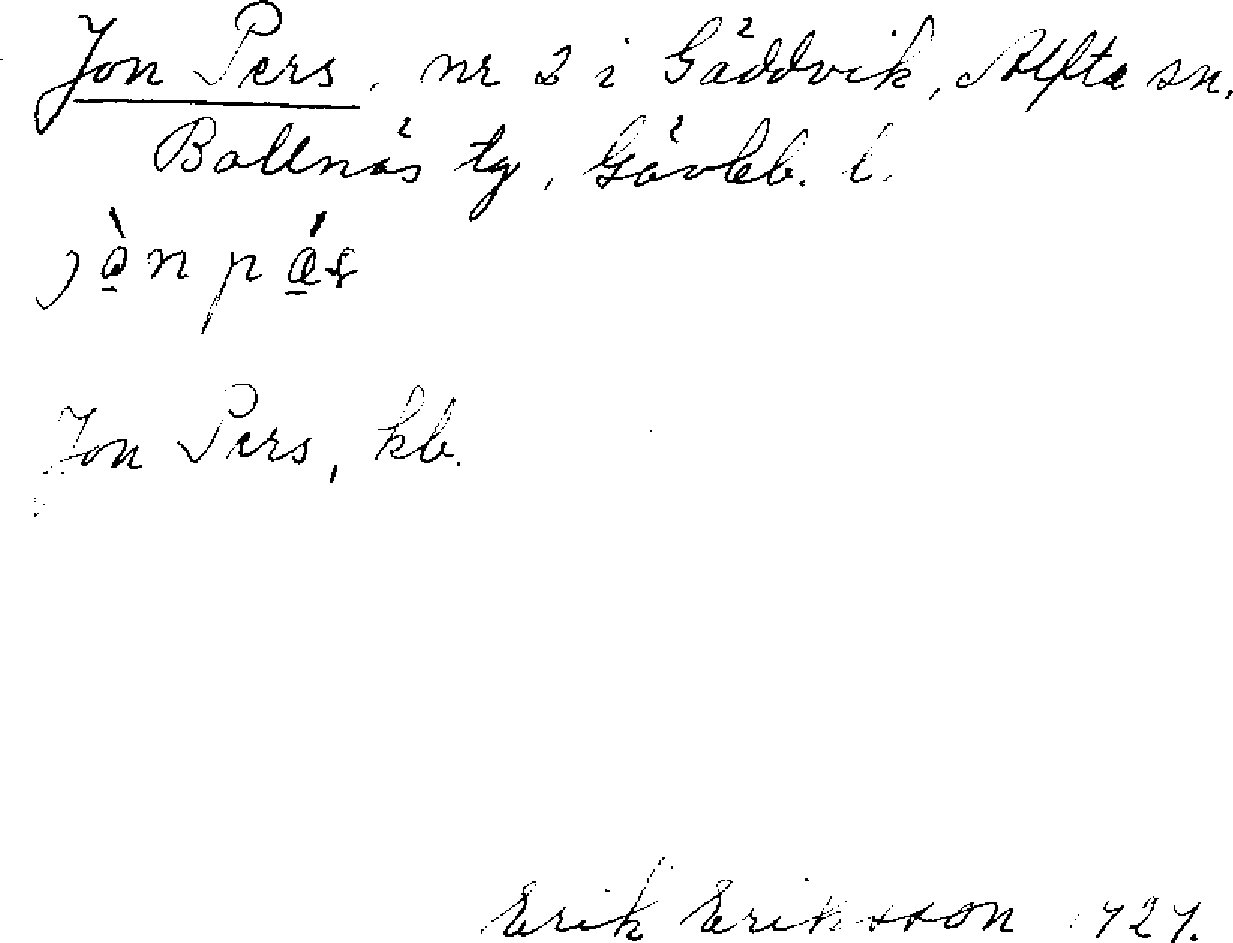 Jon Pers, nr 2 i Gäddvik, Alfta sn.
Bollnäs tg, Gävleb. l.
Jon Pers, kb.
Erik Eriksson 1927.